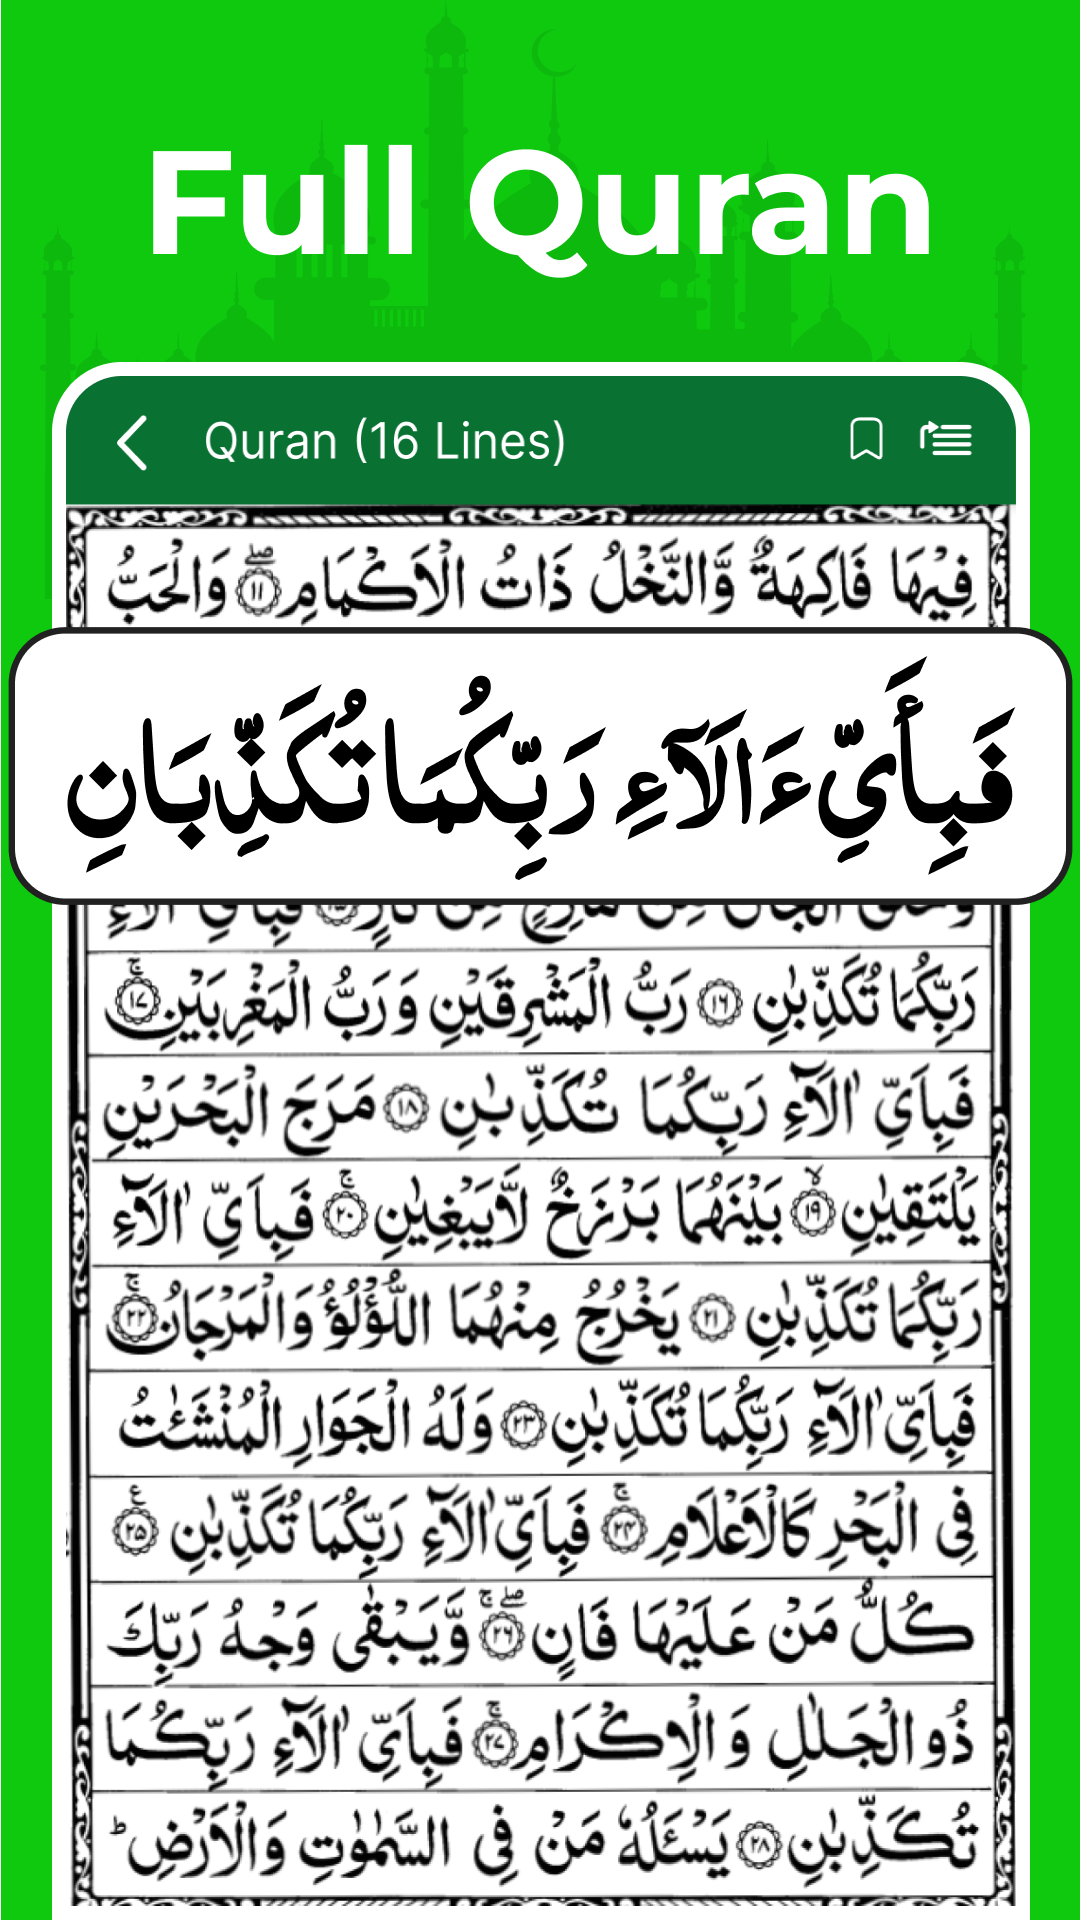 Full Quran
Quran (16 Lines)
فِيْهَا فَاكِهَةٌ وَّالنَّخْلُ ذَاتُ الْاَكْمَامِ ۖ ۝۱۱ وَالْحَبُّ
فَبِأَيِّ ءَالَآءِ رَبِّكُمَا تُكَذِّبَانِ
رَبِّكُمَا تُكَذِّبٰنِ ۝۱۶ رَبُّ الْمَشْرِقَيْنِ وَرَبُّ الْمَغْرِبَيْنِ ۚ ۝۱۷
فَبِاَيِّ اٰلَآءِ رَبِّكُمَا تُكَذِّبٰنِ ۝۱۸ مَرَجَ الْبَحْرَيْنِ
يَلْتَقِيٰنِ ۙ ۝۱۹ بَيْنَهُمَا بَرْزَخٌ لَّا يَبْغِيٰنِ ۚ ۝۲۰ فَبِاَيِّ اٰلَآءِ
رَبِّكُمَا تُكَذِّبٰنِ ۝۲۱ يَخْرُجُ مِنْهُمَا اللُّؤْلُؤُ وَالْمَرْجَانُ ۚ ۝۲۲
فَبِاَيِّ اٰلَآءِ رَبِّكُمَا تُكَذِّبٰنِ ۝۲۳ وَلَهُ الْجَوَارِ الْمُنْشَئٰتُ
فِى الْبَحْرِ كَالْاَعْلَامِ ۚ ۝۲۴ فَبِاَيِّ اٰلَآءِ رَبِّكُمَا تُكَذِّبٰنِ ۝۲۵ ع
كُلُّ مَنْ عَلَيْهَا فَانٍ ۖ ۚ ۝۲۶ وَّيَبْقٰى وَجْهُ رَبِّكَ
ذُو الْجَلٰلِ وَالْاِكْرَامِ ۚ ۝۲۷ فَبِاَيِّ اٰلَآءِ رَبِّكُمَا
تُكَذِّبٰنِ ۝۲۸ يَسْـَٔلُهٗ مَنْ فِى السَّمٰوٰتِ وَالْاَرْضِ ؕ